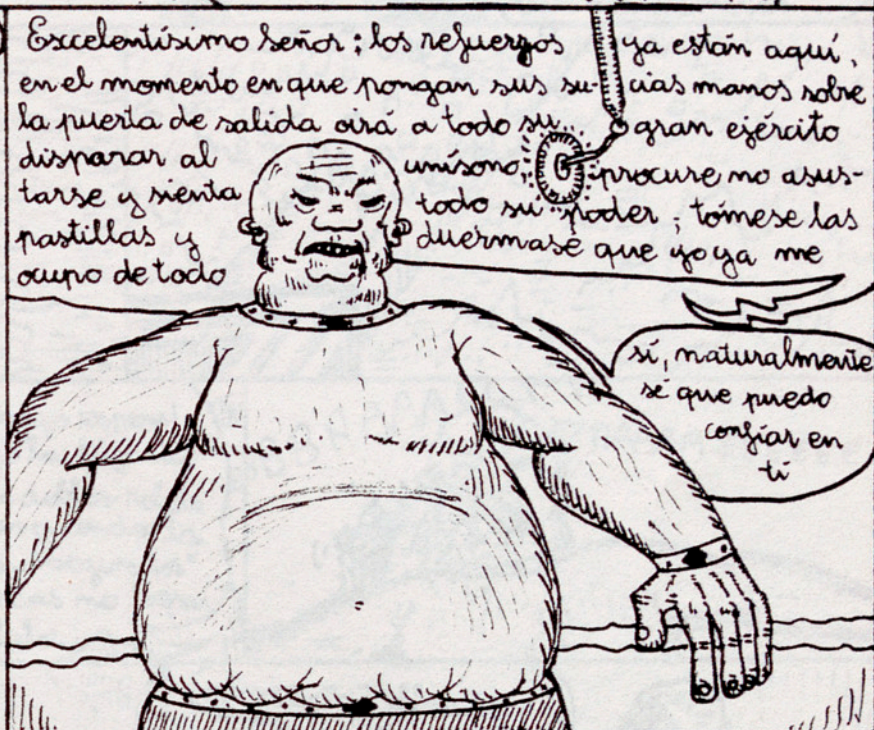 Excelentísimo Señor; los refuerzos ya están aquí,
en el momento en que pongan sus su- cias manos sobre
la puerta de salida oirá a todo su gran ejército
disparar al unísono, procure no asus-
tarse y sienta todo su poder; tómese las
pastillas y duermase que yo ya me
ocupo de todo
sí, naturalmente
sé que puedo
confiar en
ti